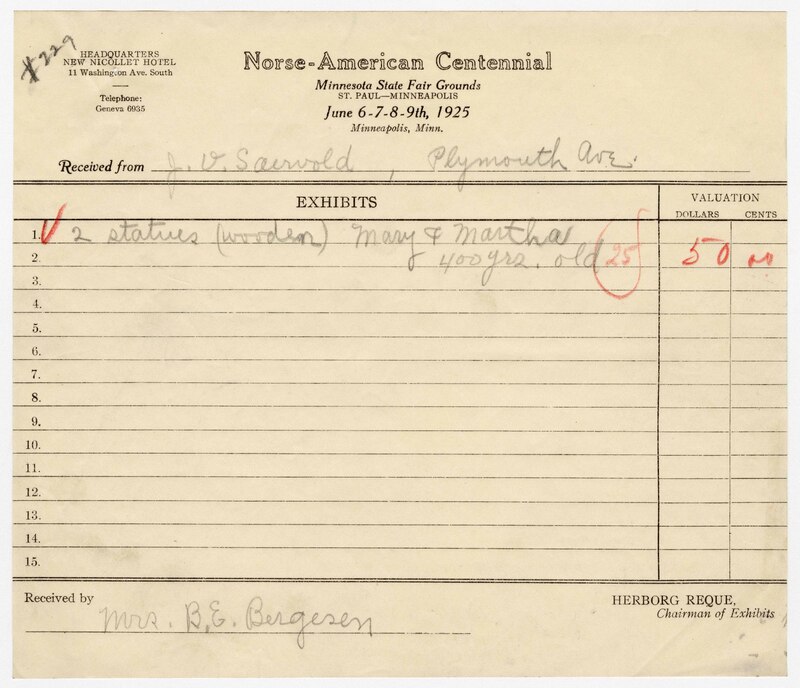 #229
HEADQUARTERS
NEW NICOLLET HOTEL
11 Washington Ave. South
Telephone:
Geneva 6935
Norse-American Centennial
Minnesota State Fair Grounds
ST. PAUL—MINNEAPOLIS
June 6-7-8-9th, 1925
Minneapolis, Minn.
Received from J. V. Saervold, Plymouth Ave.
EXHIBITS
VALUATION
DOLLARS CENTS
1. ✓ 2 statues (wooden) Mary & Martha
2. 400 yrs. old 25 50 00
3.
4.
5.
6.
7.
8.
9.
10.
11.
12.
13.
14.
15.
Received by Mrs. B. E. Bergesen
HERBORG REQUE,
Chairman of Exhibits